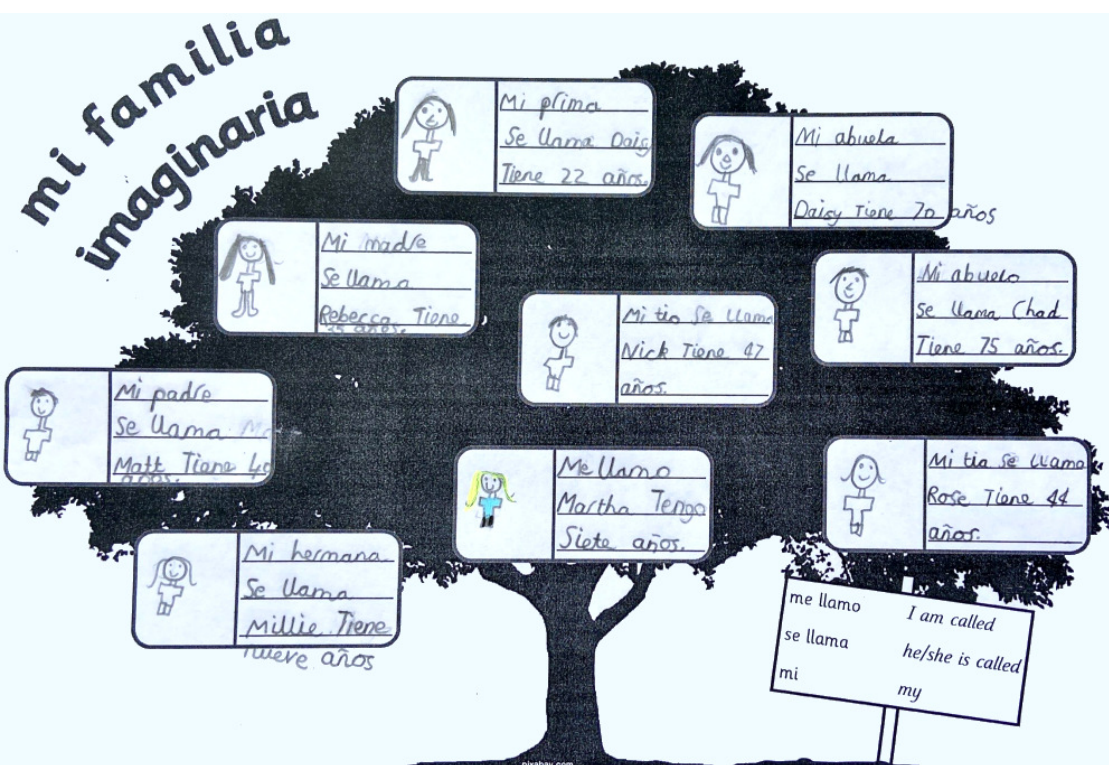 mi familia
imaginaria
Mi prima
Se llama Daisy
Tiene 22 años.
Mi abuela
Se llama
Daisy Tiene 70 años
Mi madre
Se llama
Rebecca Tiene
35 años.
Mi tio Se llama
Nick Tiene 47
años.
Mi abuelo
Se llama Chad
Tiene 75 años.
Mi padre
Se llama
Matt Tiene 40
años.
Me llamo
Martha Tengo
Siete años.
Mi tia Se llama
Rose Tiene 44
años.
Mi hermana
Se llama
Millie Tiene
nueve años
me llamo I am called
se llama he/she is called
mi my
pixabay.com